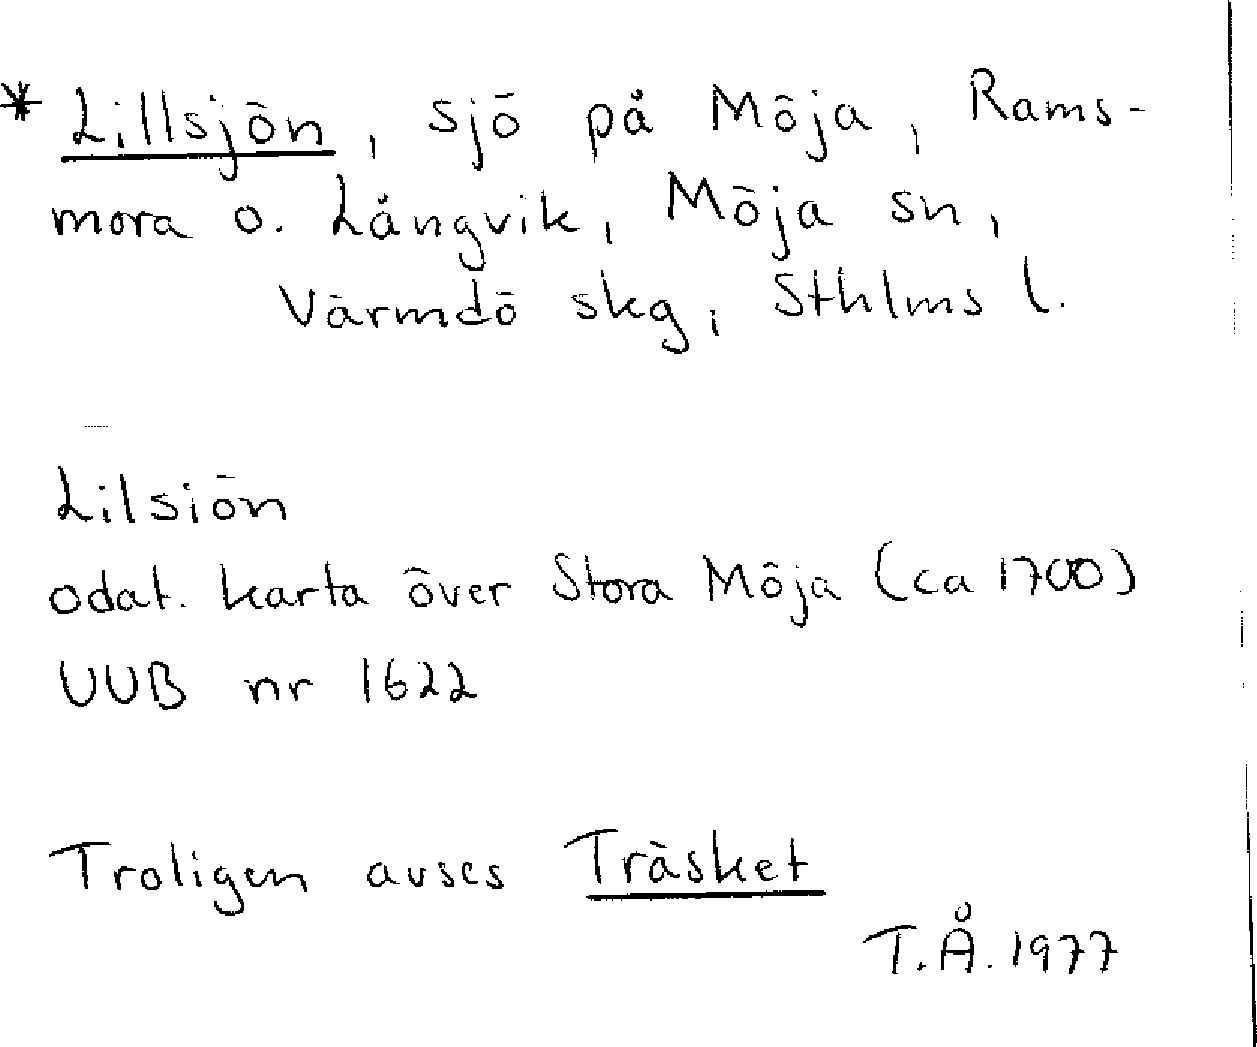 * Lillsjön, sjö på Möja, Rams-
mora o. Långvik, Möja sn,
Värmdö skg, Sthlms l.
Lilsiön
odat. karta över Stora Möja (ca 1700)
UUB nr 1622
Troligen avses Träsket
T.Å. 1977